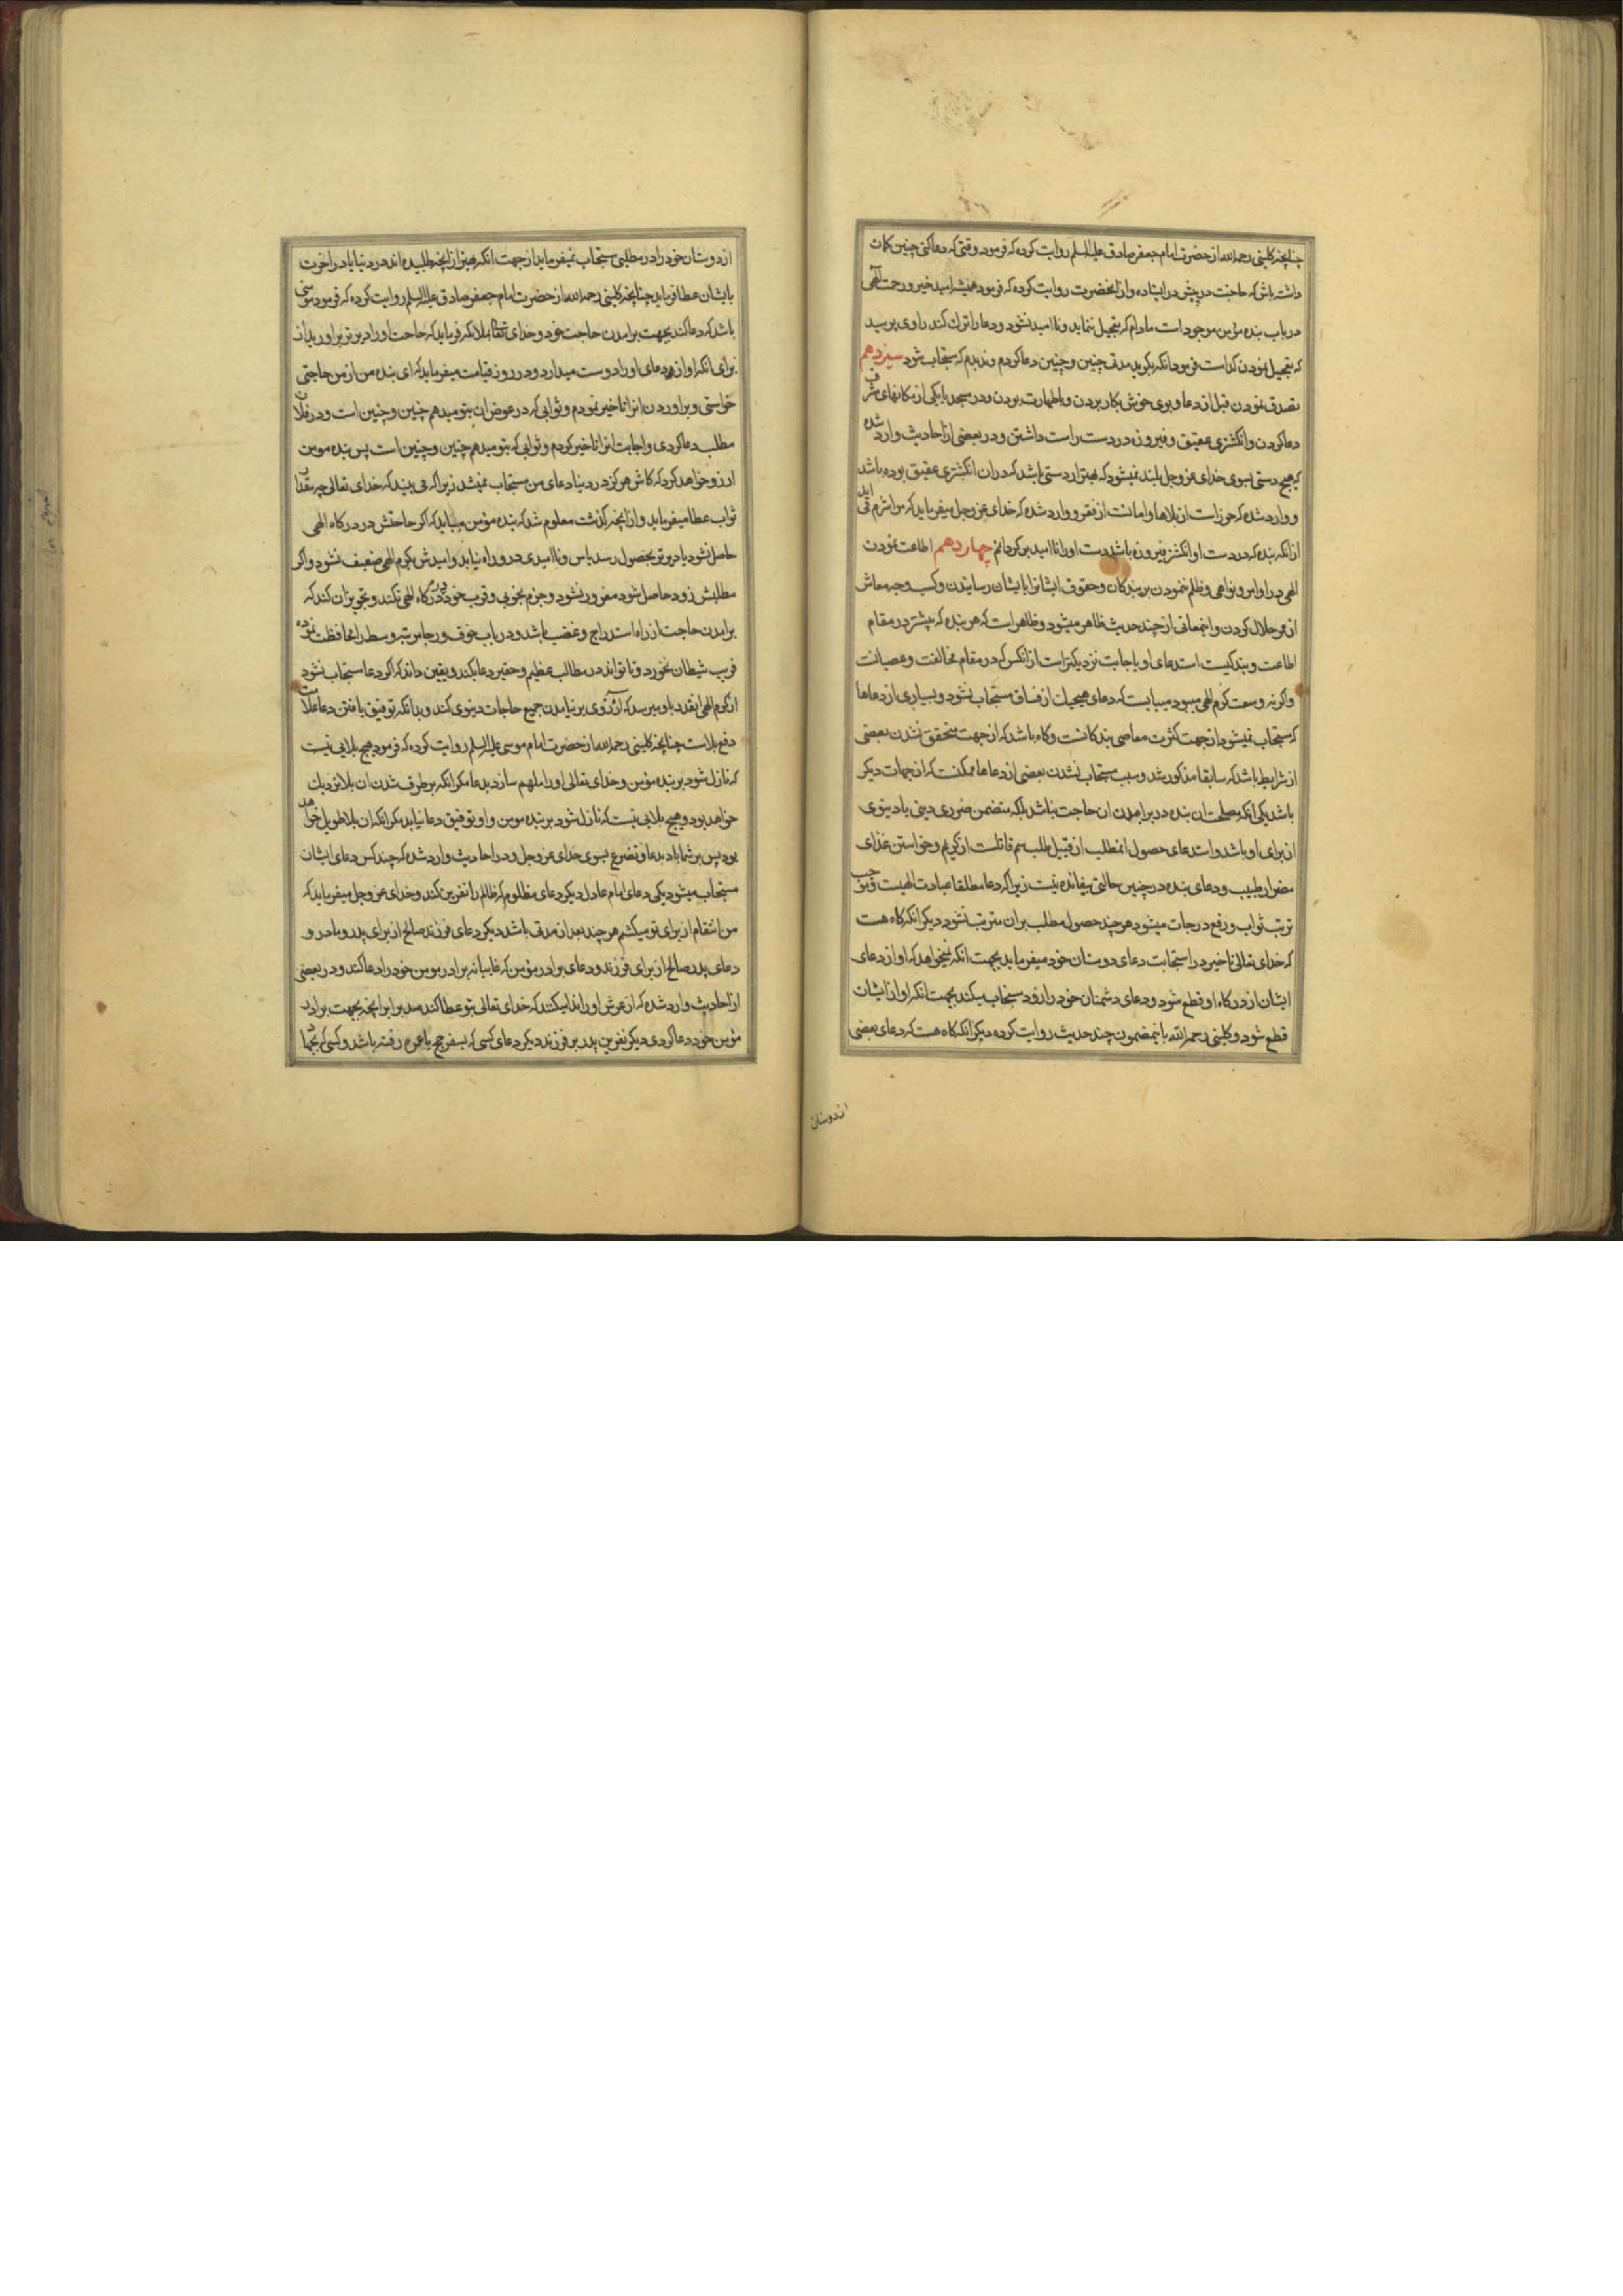 چنانچه کلینی رحمه الله از حضرت امام جعفر صادق علیه السلم روایت کرده که فرمود وقتی که دعا کنی چنین کمان
داشته باش که حاجت در پیش در ایستاده و از انحضرت روایت کرده که فرمود همیشه امید خیر و رحمت الهی
در باب بنده مؤمن موجود است مادام که تعجیل ننماید و ناامید نشود و دعا را ترک کند راوی پرسید
که تعجیل نمودن کدام است فرمود انکه بکوید مدتی چنین و چنین دعا کردم و ندیدم که مستجاب شود سیزدهم
تصدق نمودن قبل از دعا و بوی خوش بکار بردن و باطهارت بودن و در مسجد یا یکی از مکانهای شریف
دعا کردن و انکشتری عقیق و فیروزه در دست راست داشتن و در بعضی از احادیث وارد شده
که هیچ دستی بسوی خدای عز و جل بلند نمیشود که بهتر از دستی باشد که در ان انکشتری عقیق بوده باشد
و وارد شده که حرز است از بلاها و امانت از فقر و وارد شده که خدای عز و جل میفرماید که مرا شرم می اید
از انکه بنده که در دست او انکشتر فیروزه باشد دست او را ناامید برکردانم چهاردهم اطاعت نمودن
الهی در اوامر و نواهی و ظلم ننمودن بر بندکان و حقوق ایشانرا بایشان رسانیدن و کسب و وجه معاش
از ممر حلال کردن و اینمعانی از چند حدیث ظاهر میشود و ظاهر است که هر بنده که بیشتر در مقام
اطاعت و بندکیست استدعای او باجابت نزدیکتر است از انکس که در مقام مخالفت و عصیانست
و اکر نه وسعت کرم الهی میبود میبایست که دعای هیچیک از فساق مستجاب نشود و بسیاری از دعاها
که مستجاب نمیشود از جهت کثرت معاصی بندکانست و کاه باشد که از جهت متحقق نشدن بعضی
از شرایط باشد که سابقا مذکور شد و سبب مستجاب نشدن بعضی از دعاها ممکنست که از جهات دیکر
باشد یکی انکه مصلحت ان بنده در برامدن ان حاجت نباشد بلکه متضمن ضرری دینی یا دنیوی
از برای او باشد و استدعای حصول انمطلب از قبیل طلب سم قاتلست از کریم و خواستن غذای
مضر از طبیب و دعای بنده در چنین حالتی بیفائده نیست زیرا که دعا مطلقا عبادت الهیست و موجب
ترتب ثواب و رفع درجات میشود هر چند حصول مطلب بران مترتب نشود دیکر انکه کاه هست
که خدای تعالی تاخیر در استجابت دعای دوستان خود میفرماید بجهت انکه نمیخواهد که اواز دعای
ایشان از درکاه او قطع شود و دعای دشمنان خود را زود مستجاب میکند بجهت انکه اواز ایشان
قطع شود و کلینی رحمه الله باینمضمون چند حدیث روایت کرده دیکر انکه کاه هست که دعای بعضی
از دوستان
از دوستان خود را در مطلبی مستجاب نمیفرماید از جهت انکه بهتر از انچه طلبیده اند در دنیا یا در اخرت
بایشان عطا فرماید چنانچه کلینی رحمه الله از حضرت امام جعفر صادق علیه السلم روایت کرده که فرمود مؤمنی
باشد که دعا کند بجهت برامدن حاجت خود و خدای تعالی بملائکه فرماید که حاجت او را دیرتر براورید از
برای انکه اواز و دعای او را دوست میدارد و در روز قیامت میفرماید که ای بنده من از من حاجتی
خواستی و براوردن انرا تاخیر نمودم و ثوابی که در عوض ان بتو میدهم چنین و چنین است و در فلان
مطلب دعا کردی و اجابت انرا تاخیر کردم و ثوابی که بتو میدهم چنین و چنین است پس بنده مومن
ارزو خواهد کرد که کاش هرکز در دنیا دعای من مستجاب نمیشد زیرا که می بیند که خدای تعالی چه مقدار
ثواب عطا میفرماید و از انچه کذشت معلوم شد که بنده مؤمن میباید که اکر حاجتش در درکاه الهی
حاصل نشود یا دیرتر بحصول رسد یاس و ناامیدی در و راه نیابد و امیدش بکرم الهی ضعیف نشود و اکر
مطلبش زود حاصل شود مغرور نشود و جزم بخوبی و قرب خود در درکاه الهی نکند و تجویز ان کند که
برامدن حاجت از راه استدراج و غضب باشد و در باب خوف و رجا مرتبه وسط را محافظت نموده
فریب شیطان نخورد و تا تواند در مطالب عظیم و حقیر دعا بکند و یقین داند که اکر دعا مستجاب نشود
از کرم الهی انقدر باو میرسد که ارزوی بر نیامدن جمیع حاجات دنیوی کند و بدانکه توفیق یافتن دعا علامت
دفع بلاست چنانچه کلینی رحمه الله از حضرت امام موسی علیه السلم روایت کرده که فرمود هیچ بلایی نیست
که نازل شود بر بنده مؤمن و خدای تعالی او را ملهم سازد بدعا مکر انکه برطرف شدن ان بلا نزدیک
خواهد بود و هیچ بلایی نیست که نازل شود بر بنده مومن و او توفیق دعا نیابد مکر انکه ان بلا طویل خواهد
بود پس بر شما باد بدعا و تضرع بسوی خدای عز و جل و در احادیث وارد شده که چند کس دعای ایشان
مستجاب میشود یکی دعای امام عادل دیکر دعای مظلوم که ظالم را نفرین کند و خدای عز و جل میفرماید که
من انتقام از برای تو میکشم هر چند بعد از مدتی باشد دیکر دعای فرزند صالح از برای پدر و مادر و
دعای پدر صالح از برای فرزند و دعای برادر مؤمن که غایبانه برادر مومن خود را دعا کند و در بعضی
از احادیث وارد شده که از عرش او را ندا میکنند که خدای تعالی بتو عطا کند صد برابر انچه بجهت برادر
مؤمن خود دعا کردی دیکر نفرین پدر بر فرزند دیکر دعای کسی که بسفر حج یا عمره رفته باشد و کسی که بجهاد